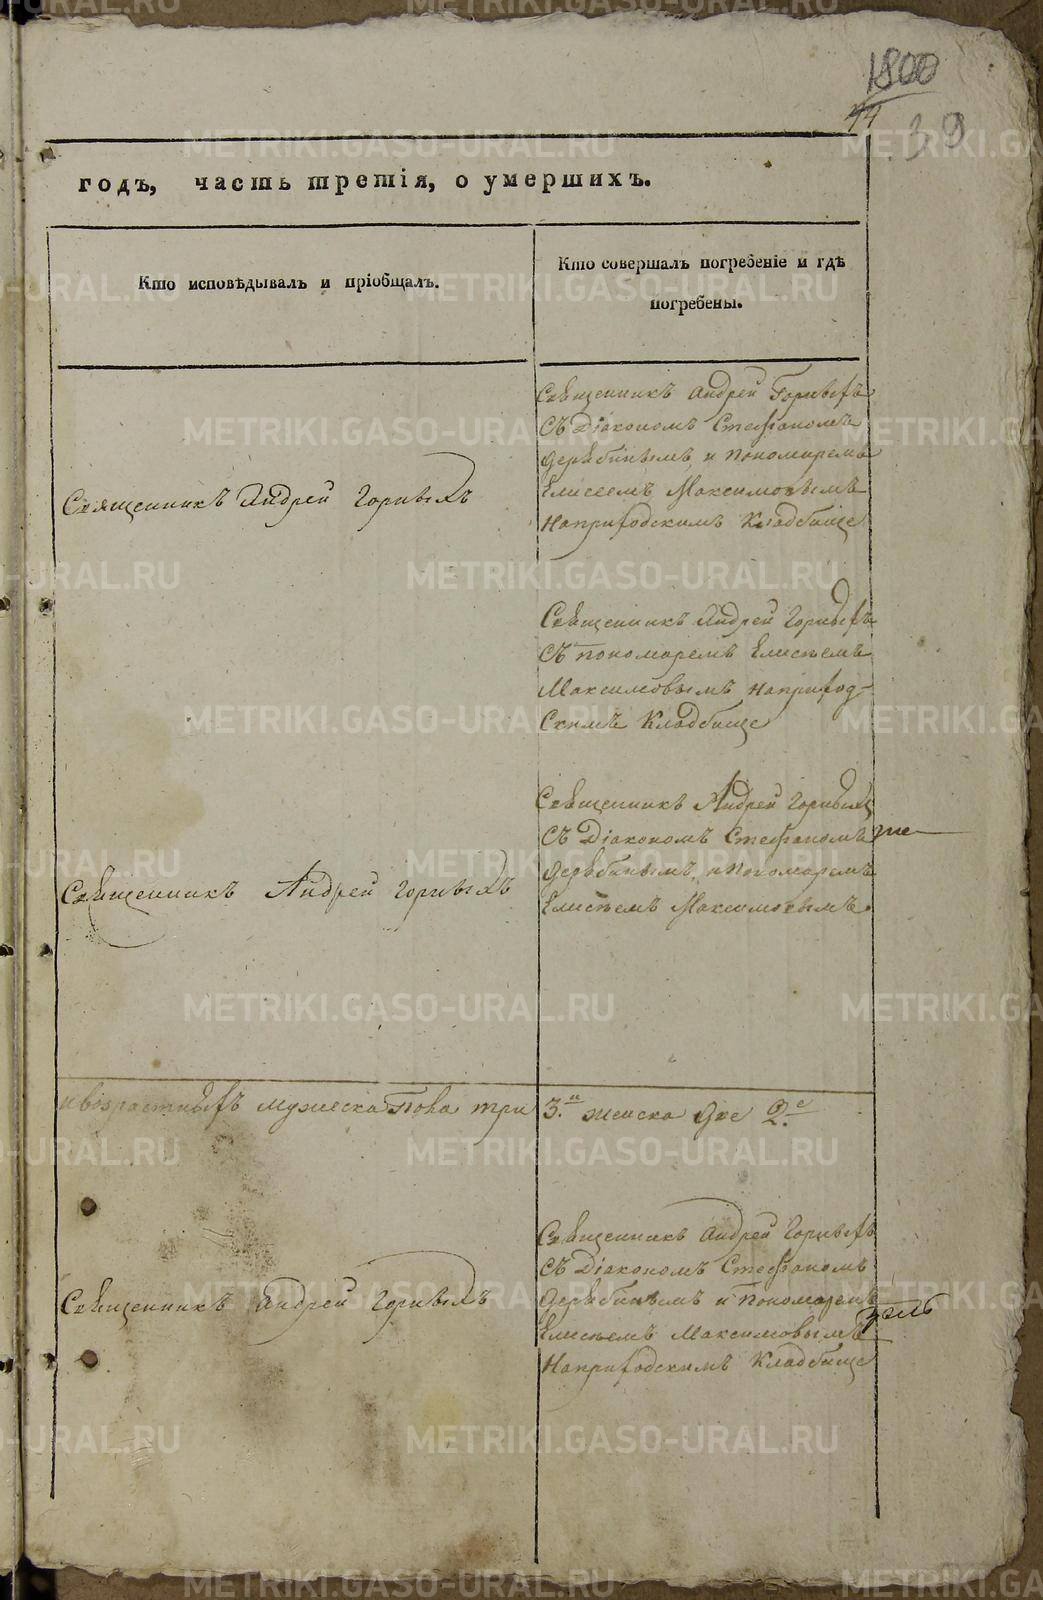 1800
44
39
годъ, часть третія, о умершихъ.
Кто исповѣдывалъ и пріобщалъ.
Кто совершалъ погребеніе и гдѣ
погребены.
Священникъ Андрей Горныхъ
Священникъ Андрей Горныхъ
съ Діакономъ Стефаномъ
Дерябинымъ и Пономаремъ
Елисеемъ Максимовымъ
На приходскимъ Кладбище
Священникъ Андрей Горныхъ
съ пономаремъ Елисѣемъ
Максимовымъ на приход-
скимъ Кладбище
Священникъ Андрей Горныхъ
Священникъ Андрей Горныхъ
съ Діакономъ Стефаномъ
Дерябинымъ и Пономаремъ
Елисѣемъ Максимовымъ.
и возрастныхъ мужеска пола три 3.и женска две 2.е
Священникъ Андрей Горныхъ
Священникъ Андрей Горныхъ
съ Діакономъ Стефаномъ
Дерябинымъ и Пономаремъ
Елисѣемъ Максимовымъ
На приходскимъ Кладбище
METRIKI.GASO-URAL.RU